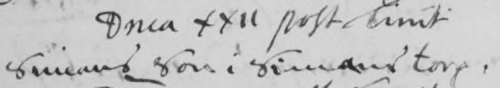 Dnca XXII post Trinit
Simans Son i Simans torp.